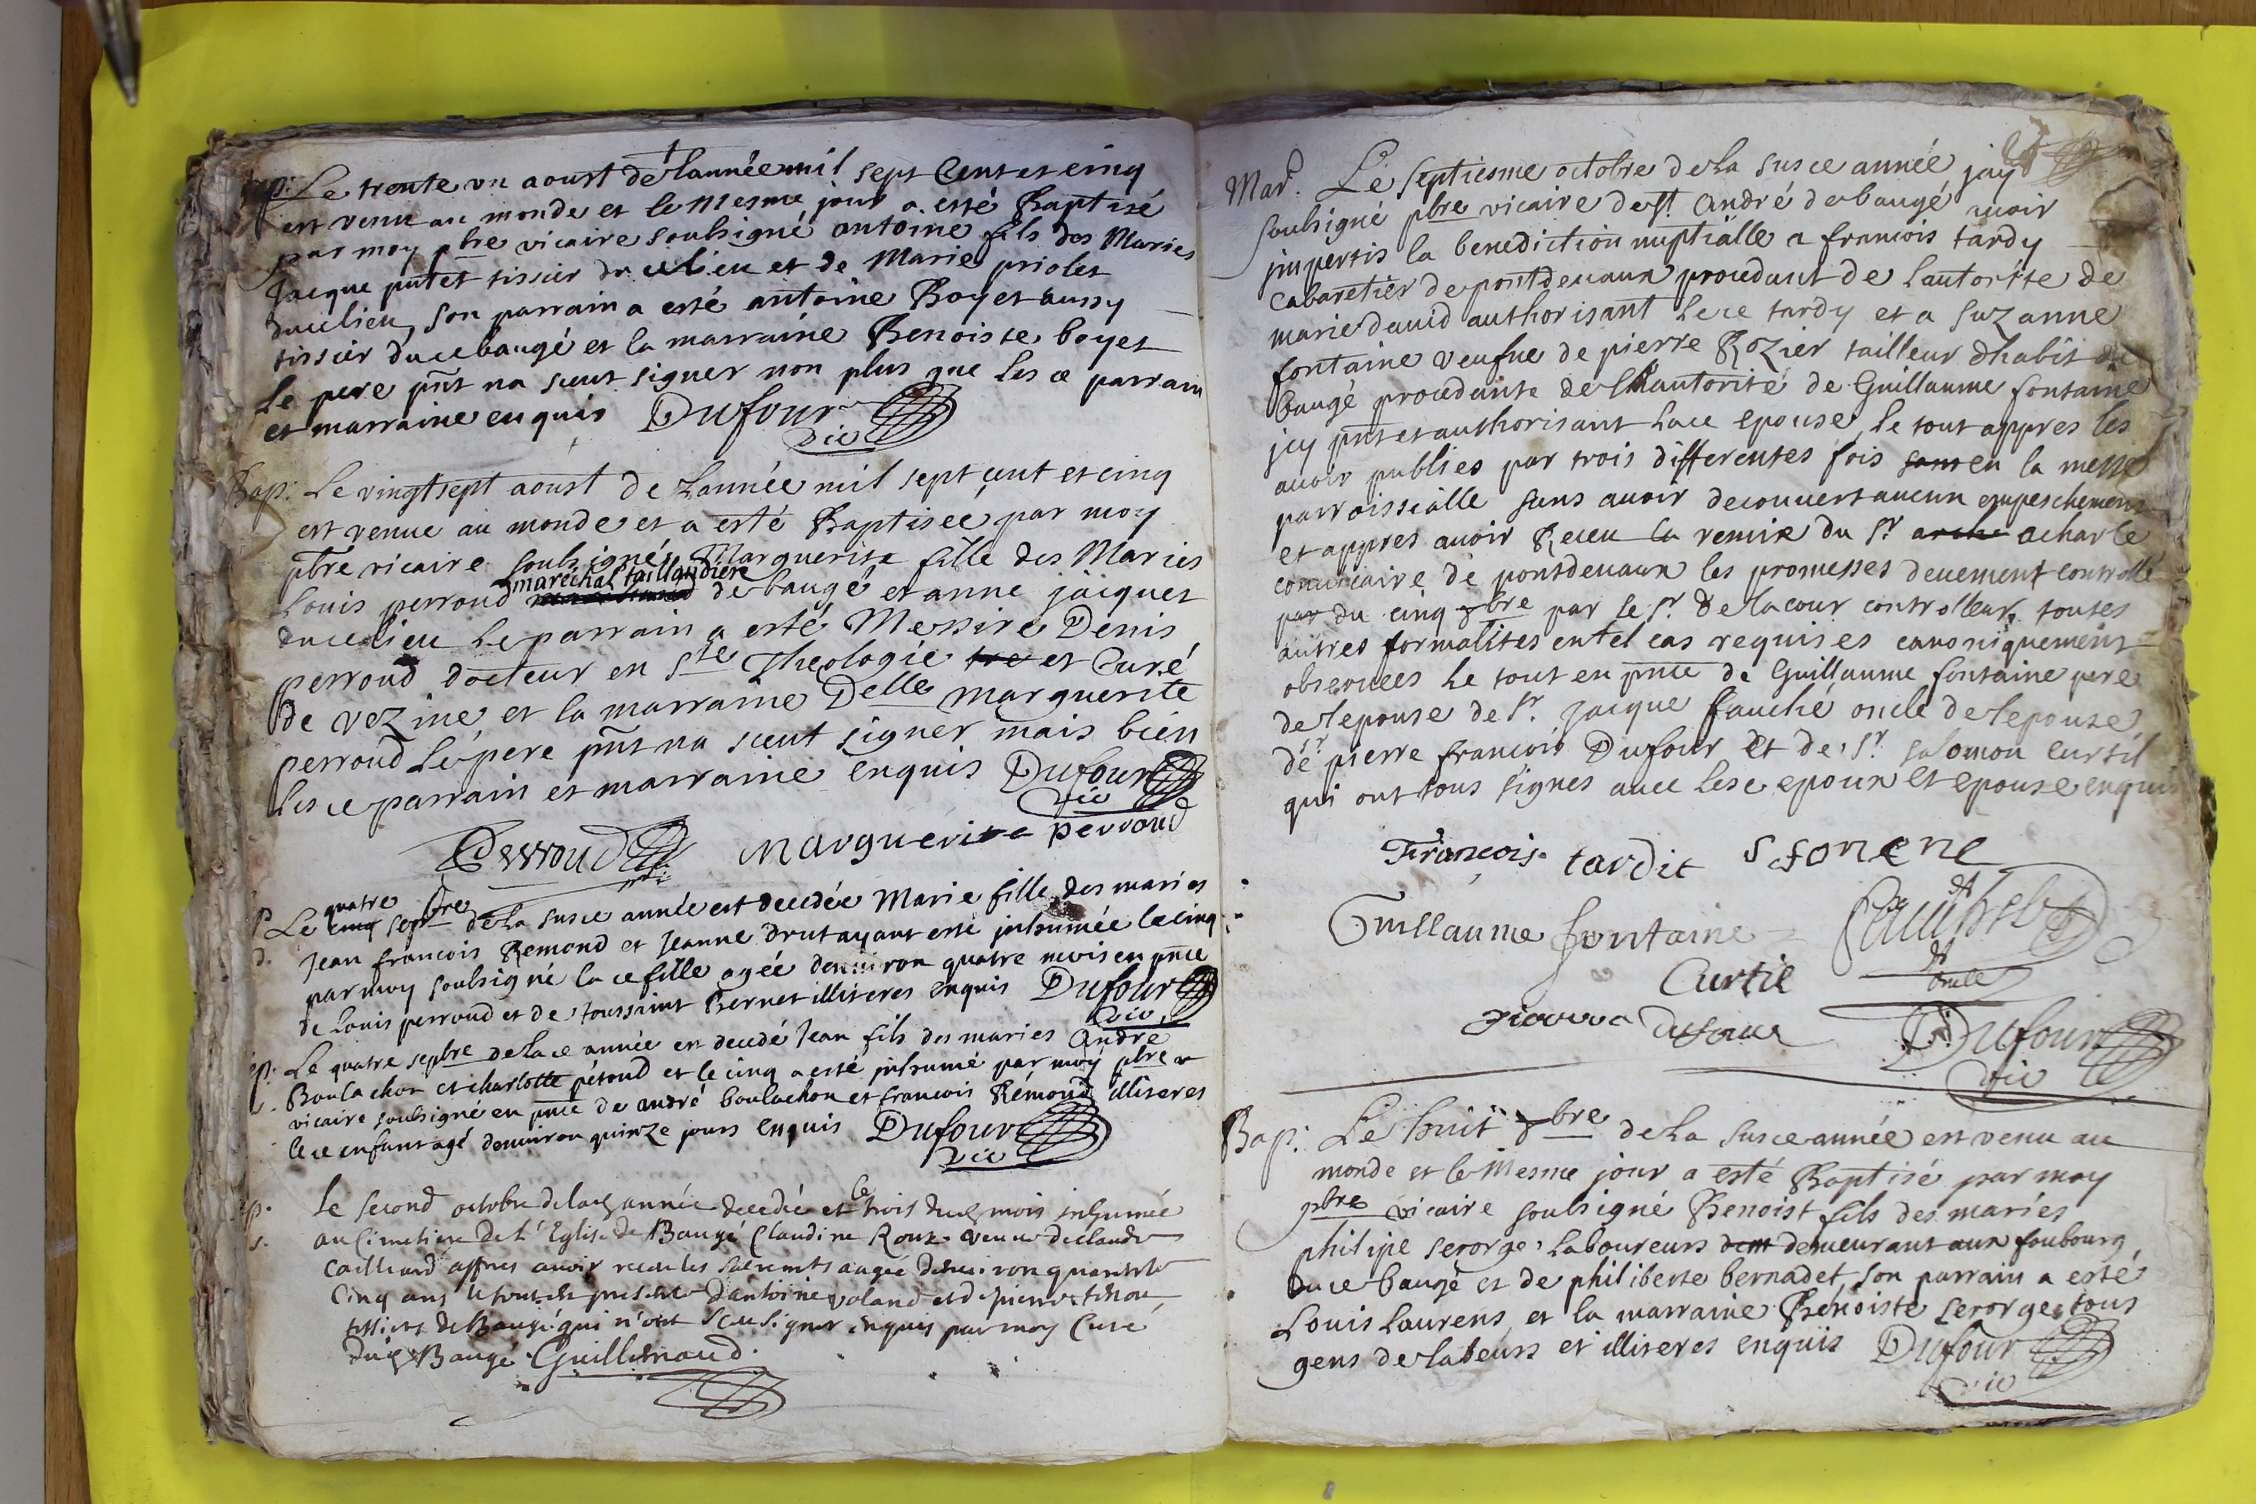 Bap: Le trente un aoust de lannée mil sept cent et cinq
est venu au monde et le mesme jour a esté Baptisé
par moy pbre vicaire soubsigné antoine fils des Maries
Jacque putet tissier du ce lieu et de Marie priolet
du ce lieu, son parrain a esté antoine Boyet aussy
tissier du ce baugé et la marraine Benoiste boyet
le pere pnt na sceut signer non plus que les ce parrain
et marraine enquis Dufour
vic
Bap: Le vingt sept aoust de lannée mil sept cent et cinq
est venue au monde et a esté Baptisée par moy
pbre vicaire soubsigné Marguerite fille des Maries
Louis perroud maréchal taillandier de baugé et anne jacquet
du ce lieu le parrain a esté Messire Denis
perroud docteur en Ste Theologie tre et Curé
de vezine et la marraine Delle marguerite
perroud le pere pnt na sceut signer mais bien
les ce parrain et marraine enquis Dufour
vic
Perroud marguerite perroud
Le quatre cinq sepbre de la susce année est decedée Marie fille des maries
Jean francois Remond et Jeanne drut ayant esté inhumée le cinq
par moy soubsigné la ce fille agée denviron quatre mois en pnce
de Louis perroud et de toussaint Bernet illiteres enquis Dufour
vic
Le quatre sepbre de la ce année en decedé Jean fils des maries André
Boulachon et charlotte pétoud et le cinq a esté inhumé par moy pbre
vicaire soubsigné en pnce de andré boulachon et francois Rémond illiteres
le ce enfant agé denviron quinze jours enquis Dufour
vic
Le second octobre de lad année decedée et le trois dud mois inhumée
au Cimetiere de L'Eglise de Baugé Claudine Roux veuve de claude
Cailliard appres avoir receu les sacrements augée denviron quarante
Cinq ans le tout en presence d'antoine voland et de pierre
tissiers de Baugé qui n'ont sceu signer enquis par moy Curé
dud Baugé Guillienaud.
Mar. Le septiesme octobre de la susce année jay
soubsigné pbre vicaire de st. andré de baugé avoir
impertis la benediction nuptialle a francois tardy
cabaretier de pontdevaux procedant de lautorite de
marie david authorisant le ce tardy et a suzanne
fontaine veufue de pierre Rozier tailleur dhabit de
baugé procedante de lautorité de Guillaume fontaine
icy pnt et authorisant la ce epouse, le tout appres les
avoir publies par trois differentes fois en la messe
parroissialle sans avoir decouvert aucun empeschement
et appres avoir Receu la remise du sr. acharle
commicaire de pontdevaux les promesses deuement controllé
par du cinq 8bre par le sr. de la cour controlleur, toutes
autres formalites en tel cas requises canoniquement
observees le tout en pnce de Guillaume fontaine pere
de lepouse de sr. Jacque fauché oncle de lepouse
de sr pierre francois Dufour et de sr. salomon curtil
qui ont tous signes avec les ce epoux et epouse enquis
François tardit S fonene
Guillaume fontaine
Curtil
pierre dufour Dufour
vic
Bap: Le huit 8bre de la susce année est venu au
monde et le mesme jour a esté Baptisé par moy
pbre vicaire soubsigné Benoist fils des mariés
philipe serorge laboureurs demeurant aux foubourg
du ce baugé et de philiberte bernadet, son parrain a esté
Louis laurens, et la marraine Bénoiste serorge, tous
gens de labeurs et illiteres enquis Dufour
vic